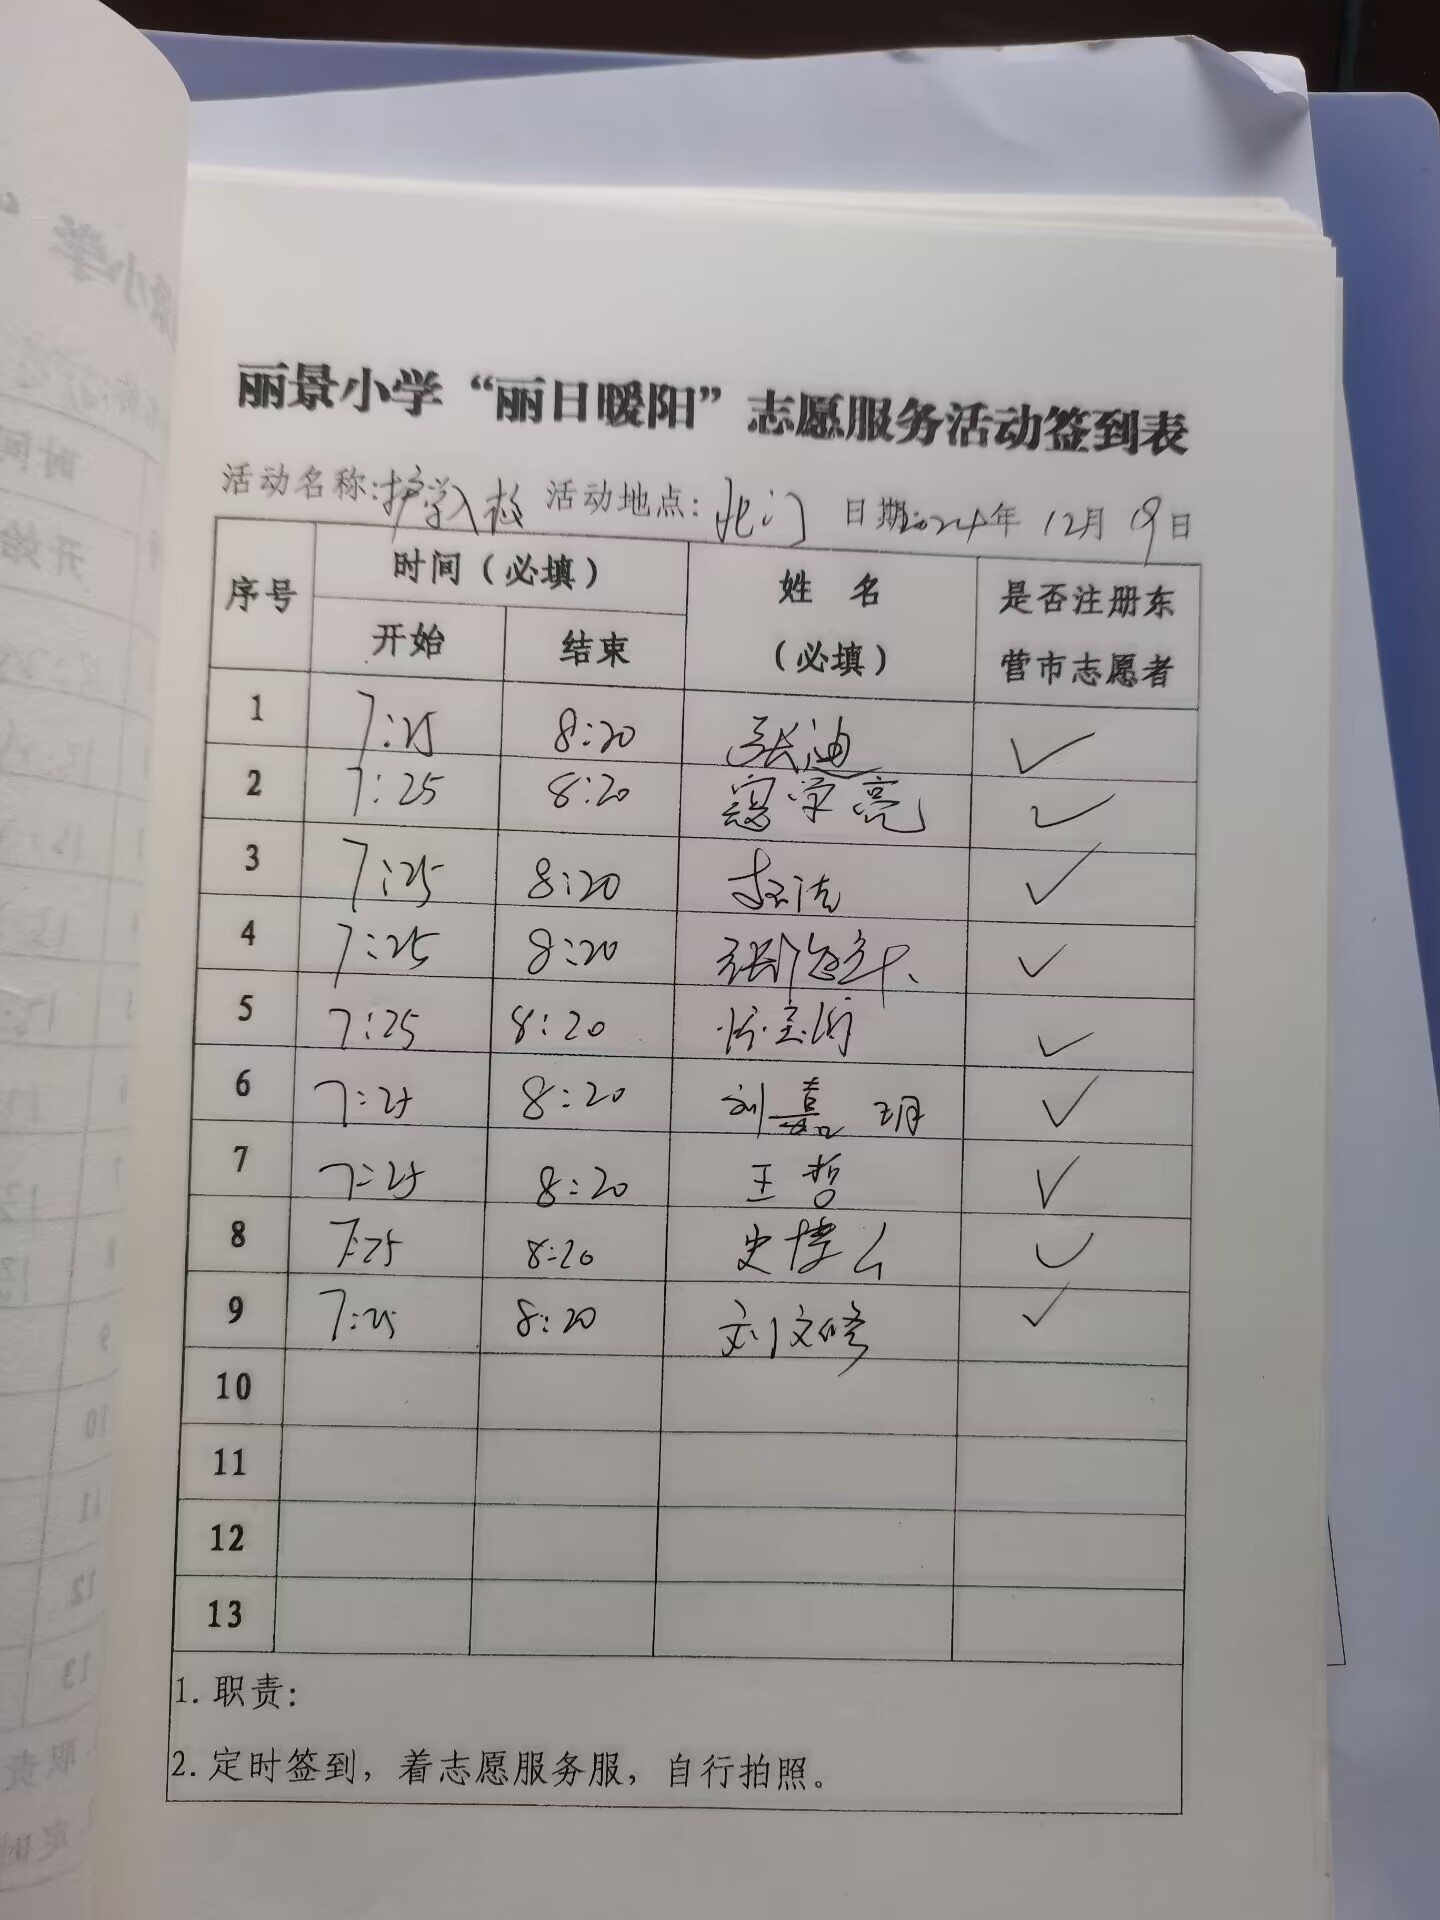 丽景小学“丽日暖阳”志愿服务活动签到表
活动名称:护学入校 活动地点:北门 日期2024年12月19日
序号 时间(必填) 姓名(必填) 是否注册东营市志愿者
开始 结束
1 7:25 8:20 张迪 ✓
2 7:25 8:20 寇学亮 ✓
3 7:25 8:20 ✓
4 7:25 8:20 张 ✓
5 7:25 8:20 ✓
6 7:25 8:20 刘嘉玥 ✓
7 7:25 8:20 王哲 ✓
8 7:25 8:20 史博 ✓
9 7:25 8:20 刘文修 ✓
10
11
12
13
1. 职责:
2. 定时签到，着志愿服务服，自行拍照。